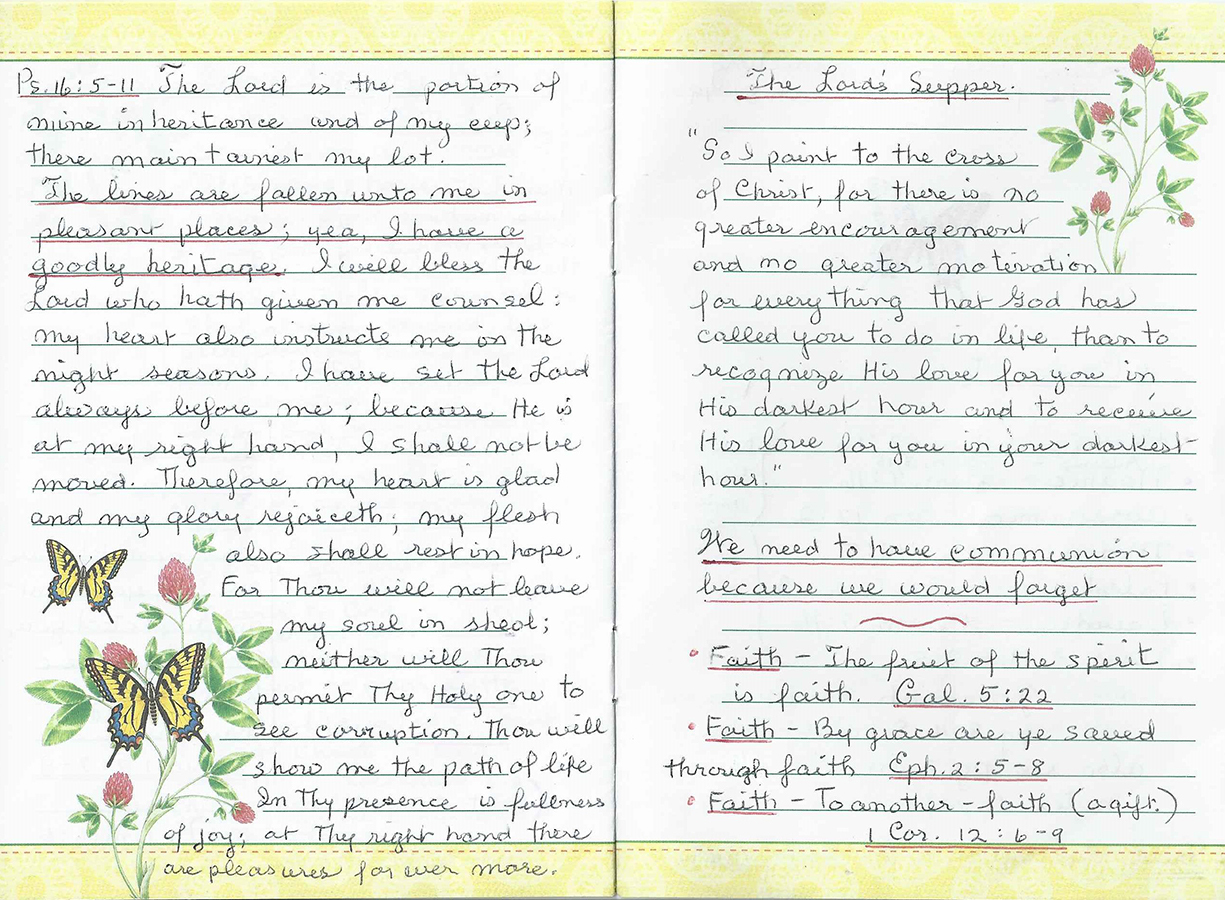 Ps. 16:5-11 The Lord is the portion of
mine inheritance and of my cup;
there maintainest my lot.
The lines are fallen unto me in
pleasant places; yea, I have a
goodly heritage. I will bless the
Lord who hath given me counsel:
my heart also instructs me in the
night seasons. I have set the Lord
always before me; because He is
at my right hand, I shall not be
moved. Therefore, my heart is glad
and my glory rejoiceth; my flesh
also shall rest in hope.
For Thou will not leave
my soul in sheol;
neither will Thou
permit Thy Holy one to
see corruption. Thou will
show me the path of life
In Thy presence is fullness
of joy; at Thy right hand there
are pleasures for ever more.
The Lord's Supper.
"So I point to the cross
of Christ, for there is no
greater encouragement
and no greater motivation
for everything that God has
called you to do in life, than to
recognize His love for you in
His darkest hour and to receive
His love for you in your darkest
hour."
We need to have communion
because we would forget
• Faith - The fruit of the spirit
is faith. Gal. 5:22
• Faith - By grace are ye saved
through faith Eph. 2:5-8
• Faith - To another - faith (a gift.)
1 Cor. 12:6-9